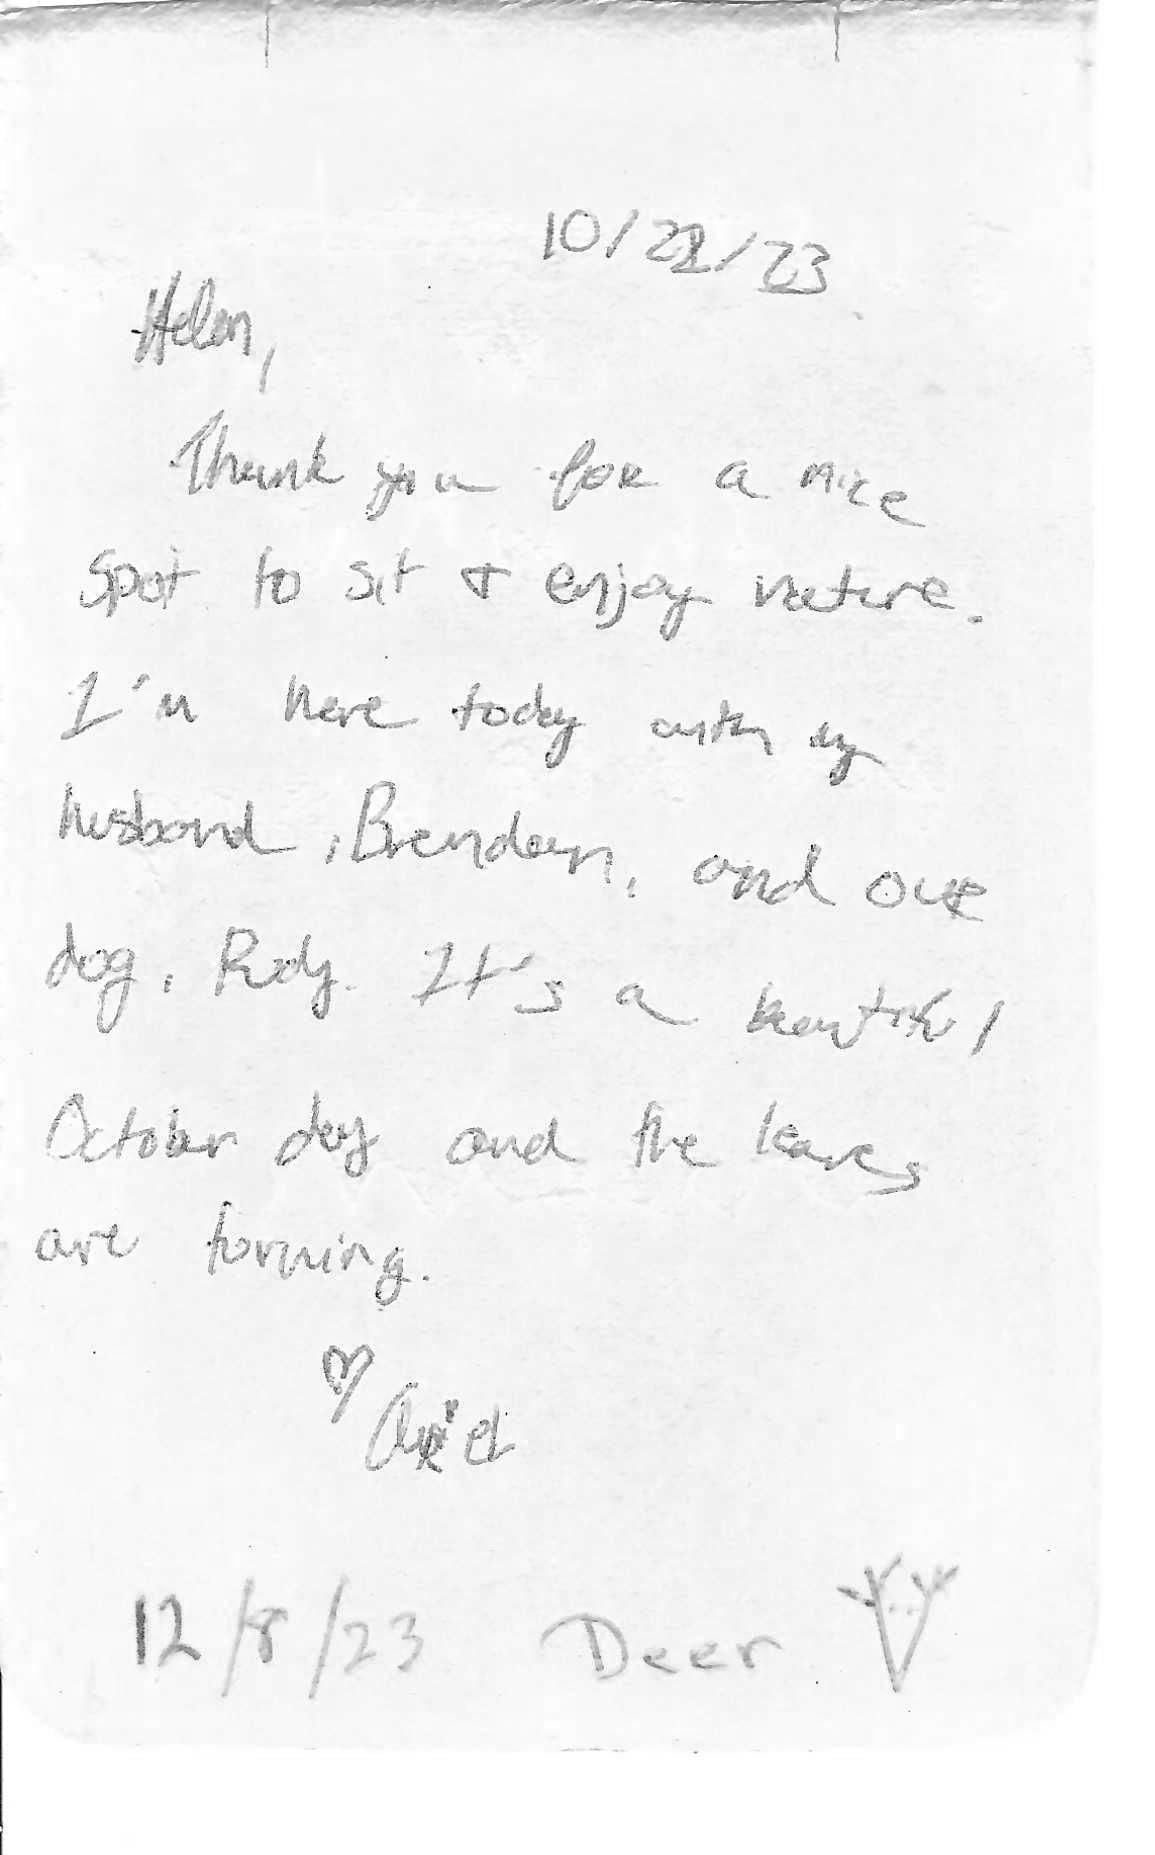 10/22/23
Helen,
Thank you for a nice
spot to sit & enjoy nature.
I'm here today with my
husband, Brendan, and our
dog, Rudy. It's a beautiful
October day and the leaves
are turning.
♡ Ariel
12/8/23 Deer